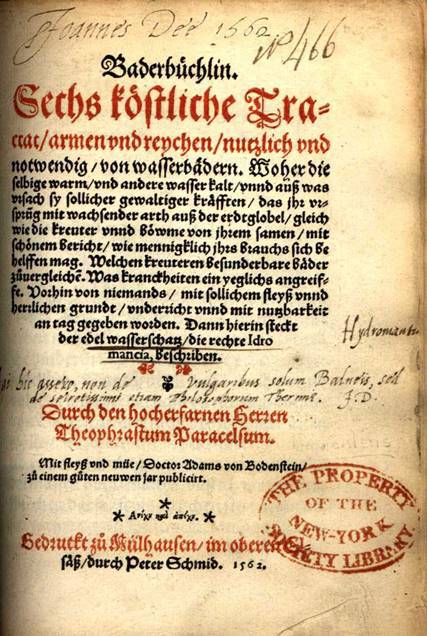 Joannes Dee 1562
No 466
Baderbüchlin.
Sechs köstliche Tra-
ctat/armen vnd reychen/nutzlich vnd
notwendig/von wasserbädern. Woher die
selbige warm/vnd andere wasser kalt/vnnd auß was
vrsach sy sollicher gewaltiger kräfften/das jhr vr-
sprüg mit wachsender arth auß der erdtglobel/gleich
wie die kreuter vnnd böwme von jhrem samen/mit
schönem bericht/wie mennigklich jhrs brauchs sich be
helffen mag. Welchen kreuteren besunderbare bäder
züuergleichē. Was kranckheiten ein yeglichs angreif-
fe. Vorhin von niemands/mit sollichem fleyß vnnd
herrlichen grundt/vnderricht vnnd mit nutzbarkeit
an tag gegeben worden. Dann hierin steckt
der edel wasserschatz/die rechte Idro
mancia, beschriben.
hic assero, non de vulgaribus solum Balneis, sed
de secretissimis etiam Philosophorum Thermis. J.D.
Durch den hocherfarnen Herren
Theophrastum Paracelsum.
Mit fleyß vnd müe/Doctor Adams von Bodenstein/
zü einem güten neuwen jar publicirt.
* Ἀνέχου καὶ ἀπέχου. *
Gedruckt zü Mülhausen/im oberen El
säß/durch Peter Schmid. 1562.
THE PROPERTY
OF THE
NEW-YORK
SOCIETY LIBRARY.